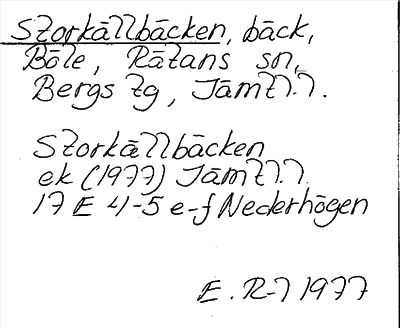 Storkällbäcken, bäck,
Böle, Rätans sn,
Bergs tg, Jämtl.l.
Storkällbäcken
ek (1977) Jämtl.l.
17 E 4-5 e-f Nederhögen
E. R-l 1977